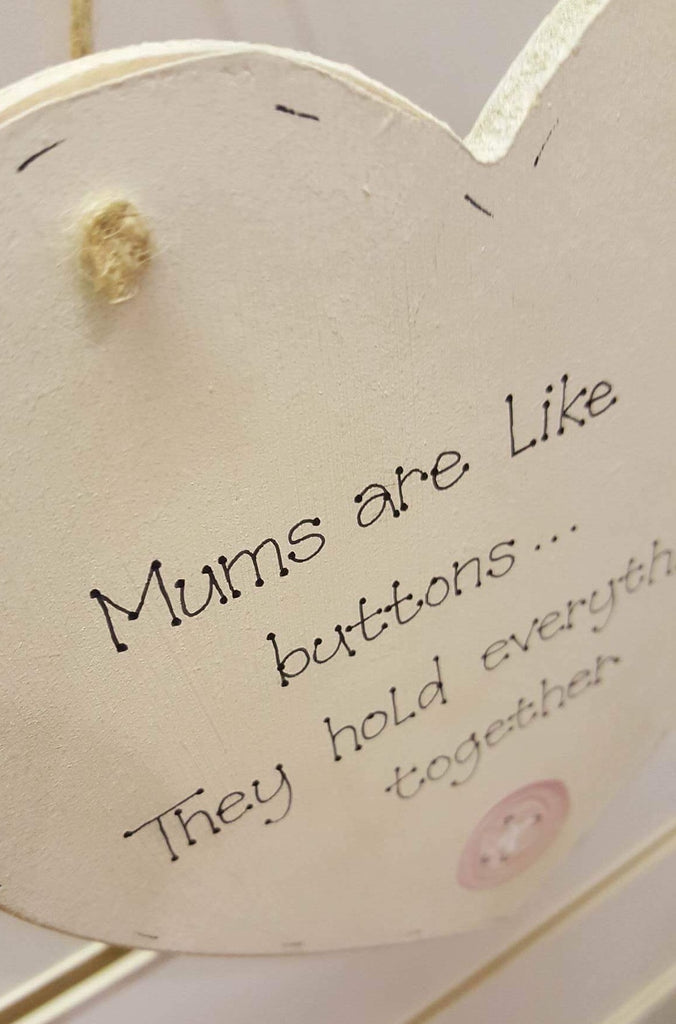 Mums are Like
buttons...
They hold everyth
together